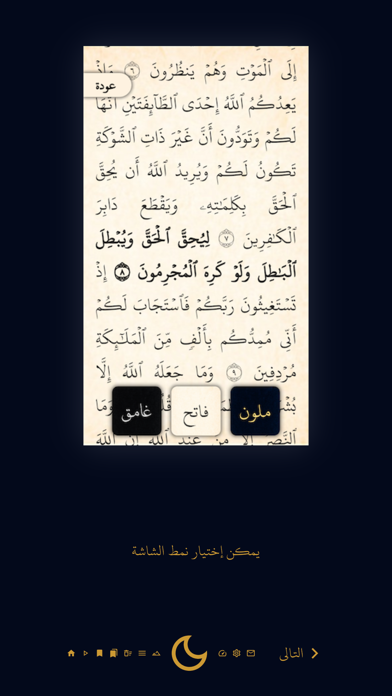 إِلَى ٱلْمَوْتِ وَهُمْ يَنظُرُونَ ٦ وَإِذْ
عودة
يَعِدُكُمُ ٱللَّهُ إِحْدَى ٱلطَّآئِفَتَيْنِ أَنَّهَا
لَكُمْ وَتَوَدُّونَ أَنَّ غَيْرَ ذَاتِ ٱلشَّوْكَةِ
تَكُونُ لَكُمْ وَيُرِيدُ ٱللَّهُ أَن يُحِقَّ
ٱلْحَقَّ بِكَلِمَٰتِهِۦ وَيَقْطَعَ دَابِرَ
ٱلْكَٰفِرِينَ ٧ لِيُحِقَّ ٱلْحَقَّ وَيُبْطِلَ
ٱلْبَٰطِلَ وَلَوْ كَرِهَ ٱلْمُجْرِمُونَ ٨ إِذْ
تَسْتَغِيثُونَ رَبَّكُمْ فَٱسْتَجَابَ لَكُمْ
أَنِّي مُمِدُّكُم بِأَلْفٍ مِّنَ ٱلْمَلَٰٓئِكَةِ
مُرْدِفِينَ ٩ وَمَا جَعَلَهُ ٱللَّهُ إِلَّا
ملون
فاتح
غامق
يمكن إختيار نمط الشاشة
التالى